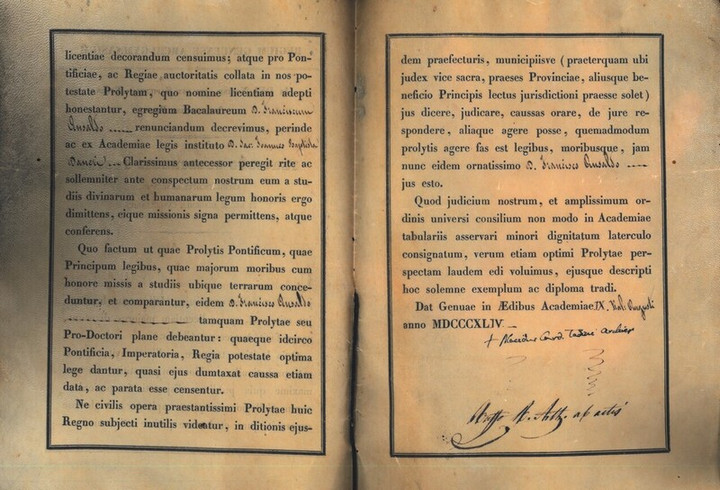 licentiae decorandum censuimus; atque pro Pon-
tificiae, ac Regiae auctoritatis collata in nos po-
testate Prolytam, quo nomine licentiam adepti
honestantur, egregium Bacalaureum D. Franciscum
Ansaldo renunciandum decrevimus, perinde
ac ex Academiae legis instituto D. Jac. Joannes Baptista
Clarissimus antecessor peregit rite ac
sollemniter ante conspectum nostrum eum a stu-
diis divinarum et humanarum legum honoris ergo
dimittens, eique missionis signa permittens, atque
conferens.
Quo factum ut quae Prolytis Pontificum, quae
Principum legibus, quae majorum moribus cum
honore missis a studiis ubique terrarum conce-
duntur, et comparantur, eidem D. Francisco Ansaldo
tamquam Prolytae seu
Pro-Doctori plane debeantur: quaeque idcirco
Pontificia, Imperatoria, Regia potestate optima
lege dantur, quasi ejus dumtaxat caussa etiam
data, ac parata esse censentur.
Ne civilis opera praestantissimi Prolytae huic
Regno subjecti inutilis videatur, in ditionis ejus-
dem praefecturis, municipiisve (praeterquam ubi
judex vice sacra, praeses Provinciae, aliusque be-
neficio Principis lectus jurisdictioni praeesse solet)
jus dicere, judicare, caussas orare, de jure re-
spondere, aliaque agere posse, quemadmodum
prolytis agere fas est legibus, moribusque, jam
nunc eidem ornatissimo D. Francisco Ansaldo
jus esto.
Quod judicium nostrum, et amplissimum or-
dinis universi consilium non modo in Academiae
tabulariis asservari minori dignitatum laterculo
consignatum, verum etiam optimi Prolytae per-
spectam laudem edi voluimus, ejusque descripti
hoc solemne exemplum ac diploma tradi.
Dat Genuae in Ædibus Academiae IX. Kal. Augusti
anno MDCCCXLIV
+ Placidus Card. Tadini
ab actis